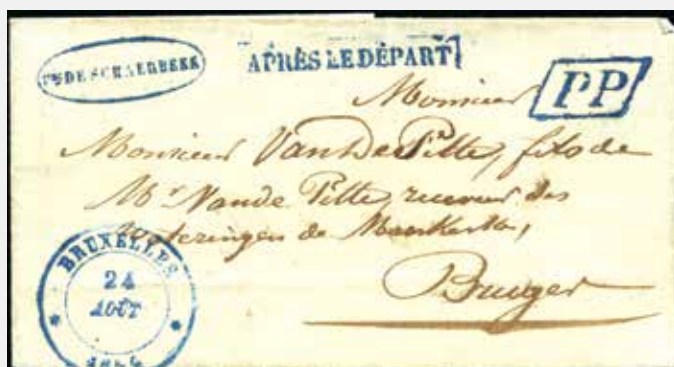 DE SCHAERBEEK
APRÈS LE DÉPART
PP
Monsieur
Monsieur VandePitte, fils de
Mr Vande Pitte, receveur des
Wateringen de Moerkerke,
Bruges
BRUXELLES
24
AOUT